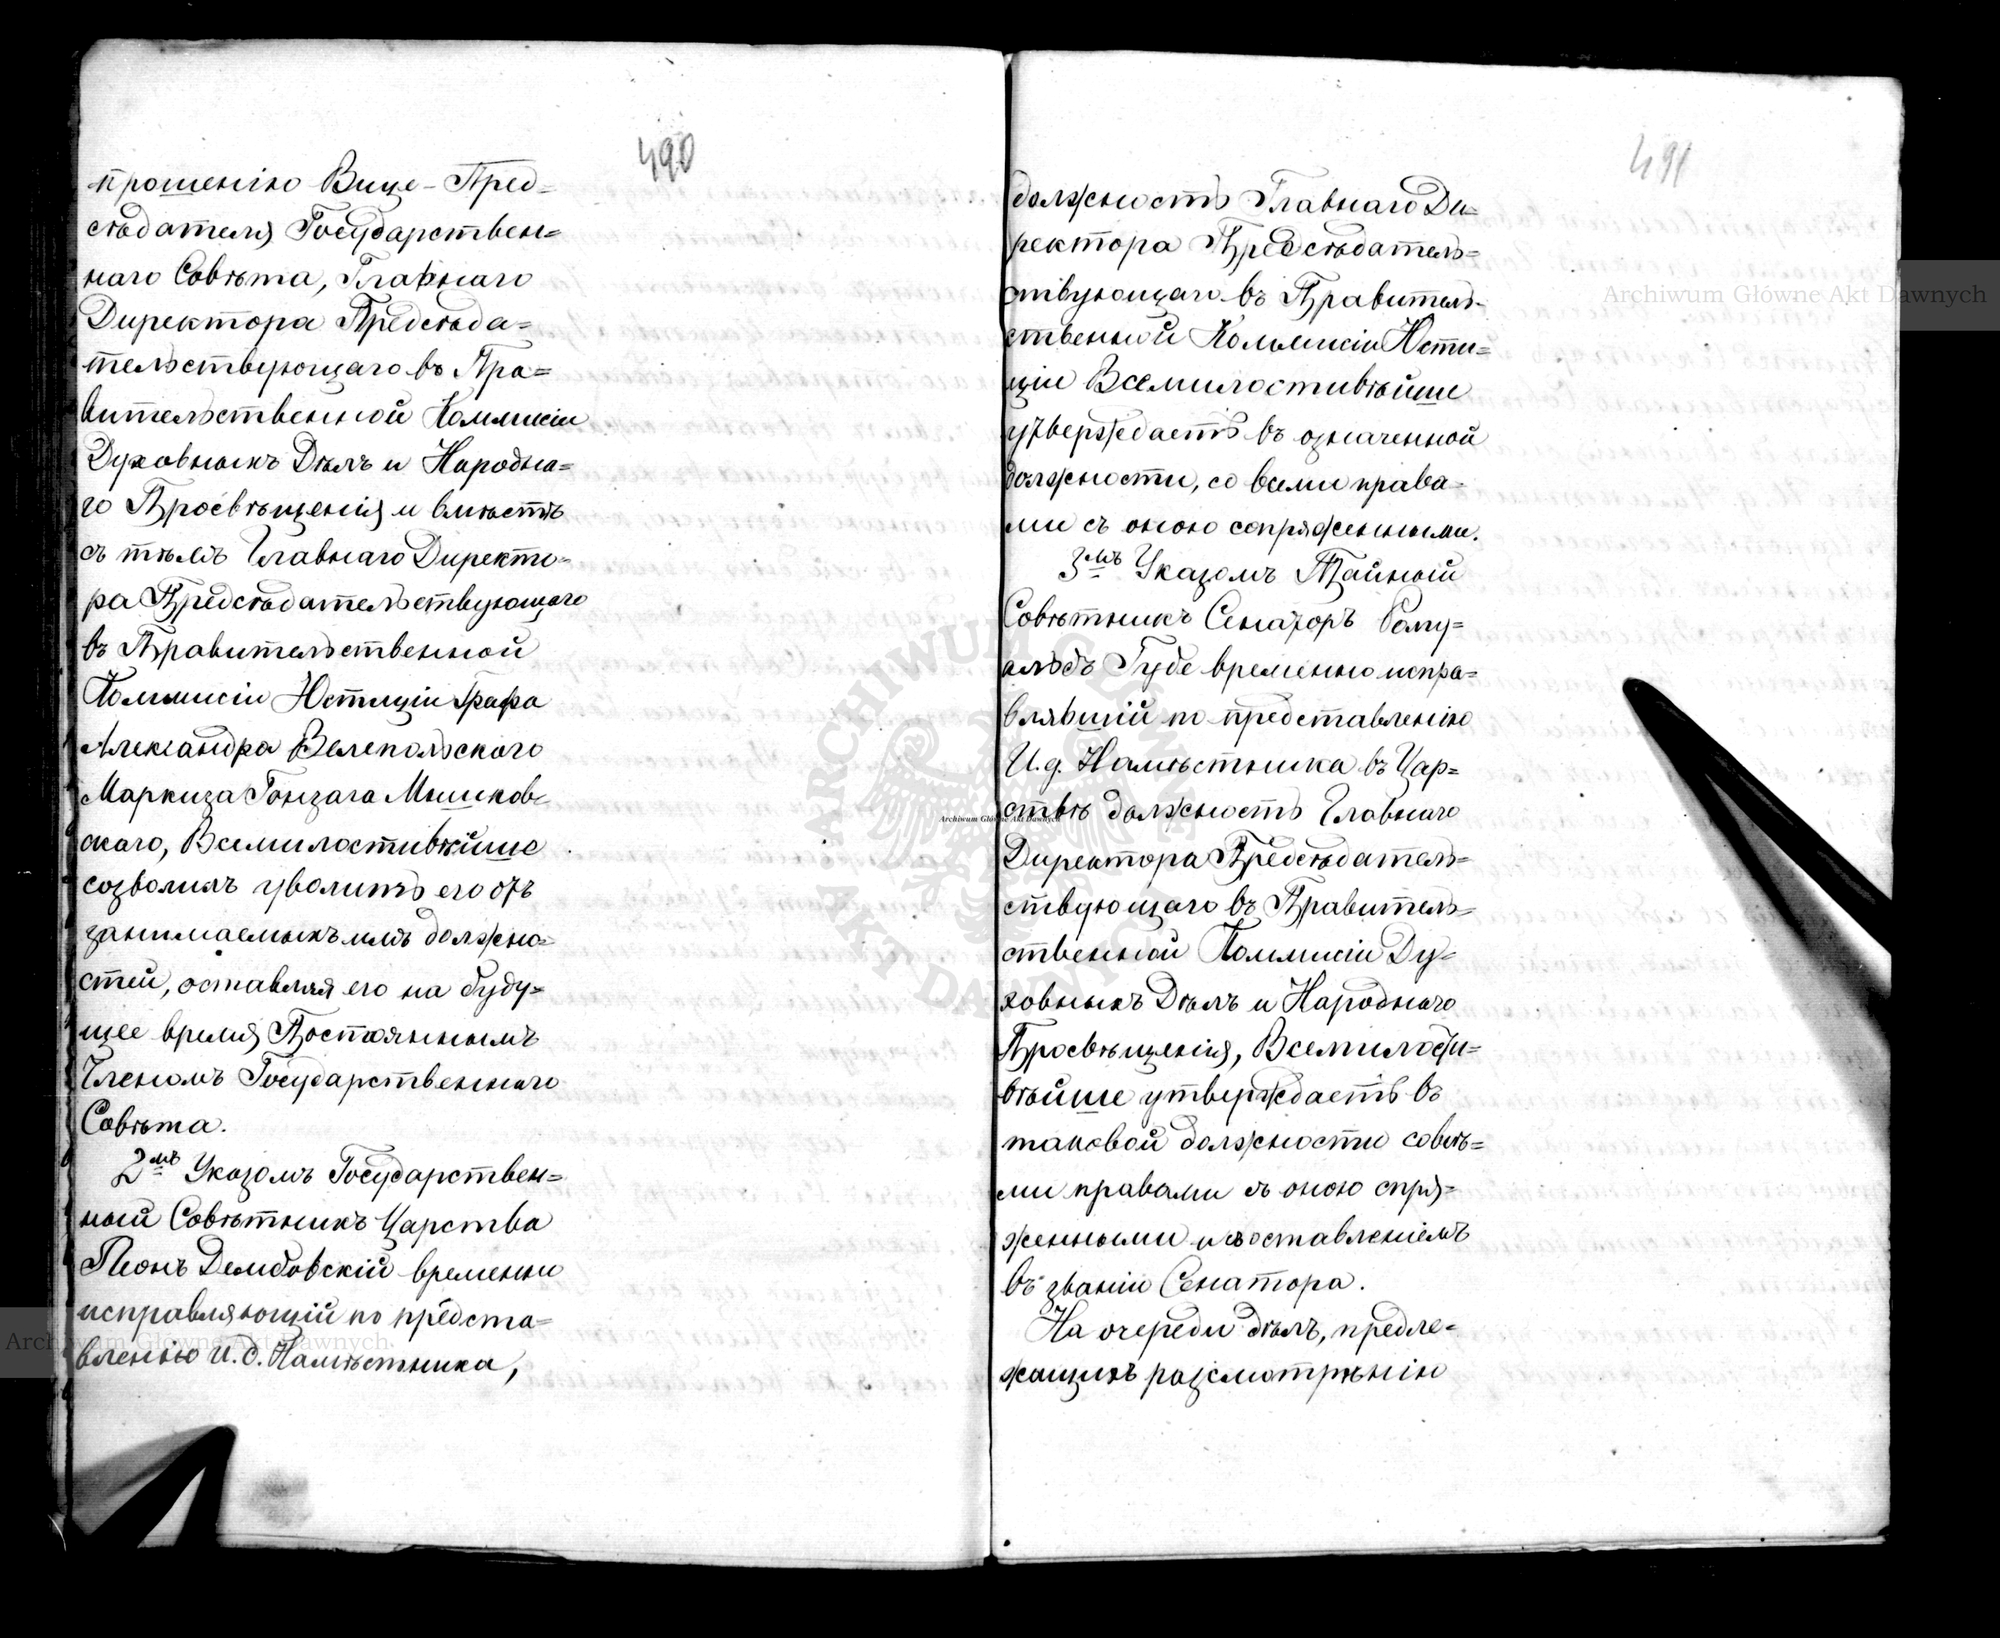 490
прошенію Вице-Пред=
сѣдателя Государствен=
наго Совѣта, Главнаго
Директора Предсѣда=
тельствующаго въ Пра=
вительственной Коммисіи
Духовныхъ Дѣлъ и Народна=
го Просвѣщенія и вмѣстѣ
съ тѣмъ Главнаго Директо=
ра Предсѣдательствующаго
въ Правительственной
Коммисіи Юстиціи Графа
Александра Велепольскаго
Маркиза Гонзага Мышков=
скаго, Всемилостивѣйше
созволилъ уволить его отъ
занимаемыхъ имъ должно=
стей, оставляя его на буду=
щее время Постояннымъ
Членомъ Государственнаго
Совѣта.
2мъ Указомъ Государствен=
ный Совѣтникъ Царства
Леонъ Дембовскій временно
исправляющій по предста=
вленію И.д. Намѣстника,
491
должность Главнаго Ди=
ректора Предсѣдатель=
ствующаго въ Правитель=
ственной Коммисіи Юсти=
ціи Всемилостивѣйше
утверждаетъ въ означенной
должности, со всеми права=
ми съ оною сопряженными.
3мъ Указомъ Тайный
Совѣтникъ Сенаторъ Рому=
альдъ Губе временно испра=
влявшій по представленію
И.д. Намѣстника въ Цар=
ствѣ должность Главнаго
Директора Предсѣдатель=
ствующаго въ Правитель=
ственной Коммисіи Ду=
ховныхъ Дѣлъ и Народнаго
Просвѣщенія, Всемилости=
вѣйше утверждаетъ въ
таковой должности со всѣ=
ми правами съ оною спря=
женными и съ оставленіемъ
въ званіи Сенатора.
На очереди дѣлъ, предле=
жащихъ разсмотрѣнію
Archiwum Główne Akt Dawnych
Archiwum Główne Akt Dawnych
Archiwum Główne Akt Dawnych
ARCHIWUM GŁÓWNE AKT DAWNYCH